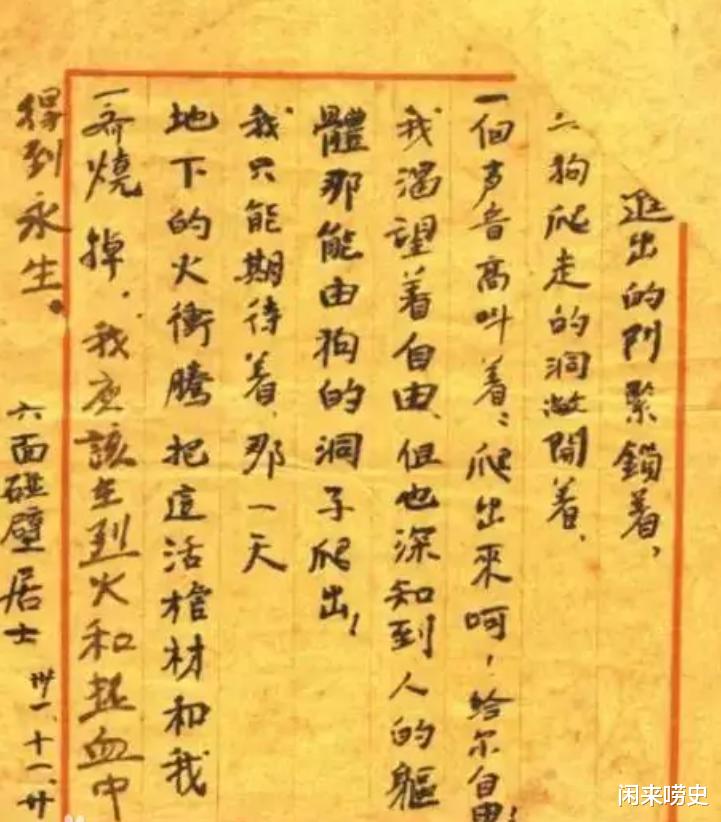 出的門緊鎖着,
狗爬走的洞敞開着、
一個声音高叫着:爬出來呵!給尔自由!
我渴望着自由、但也深知到人的軀
體那能由狗的洞子爬出!
我只能期待着、那一天
地下的火衝騰把這活棺材和我
一齊燒掉,我应該在烈火和熱血中
得到永生。
六面碰壁居士 卅一、十一、廿
闲来唠史